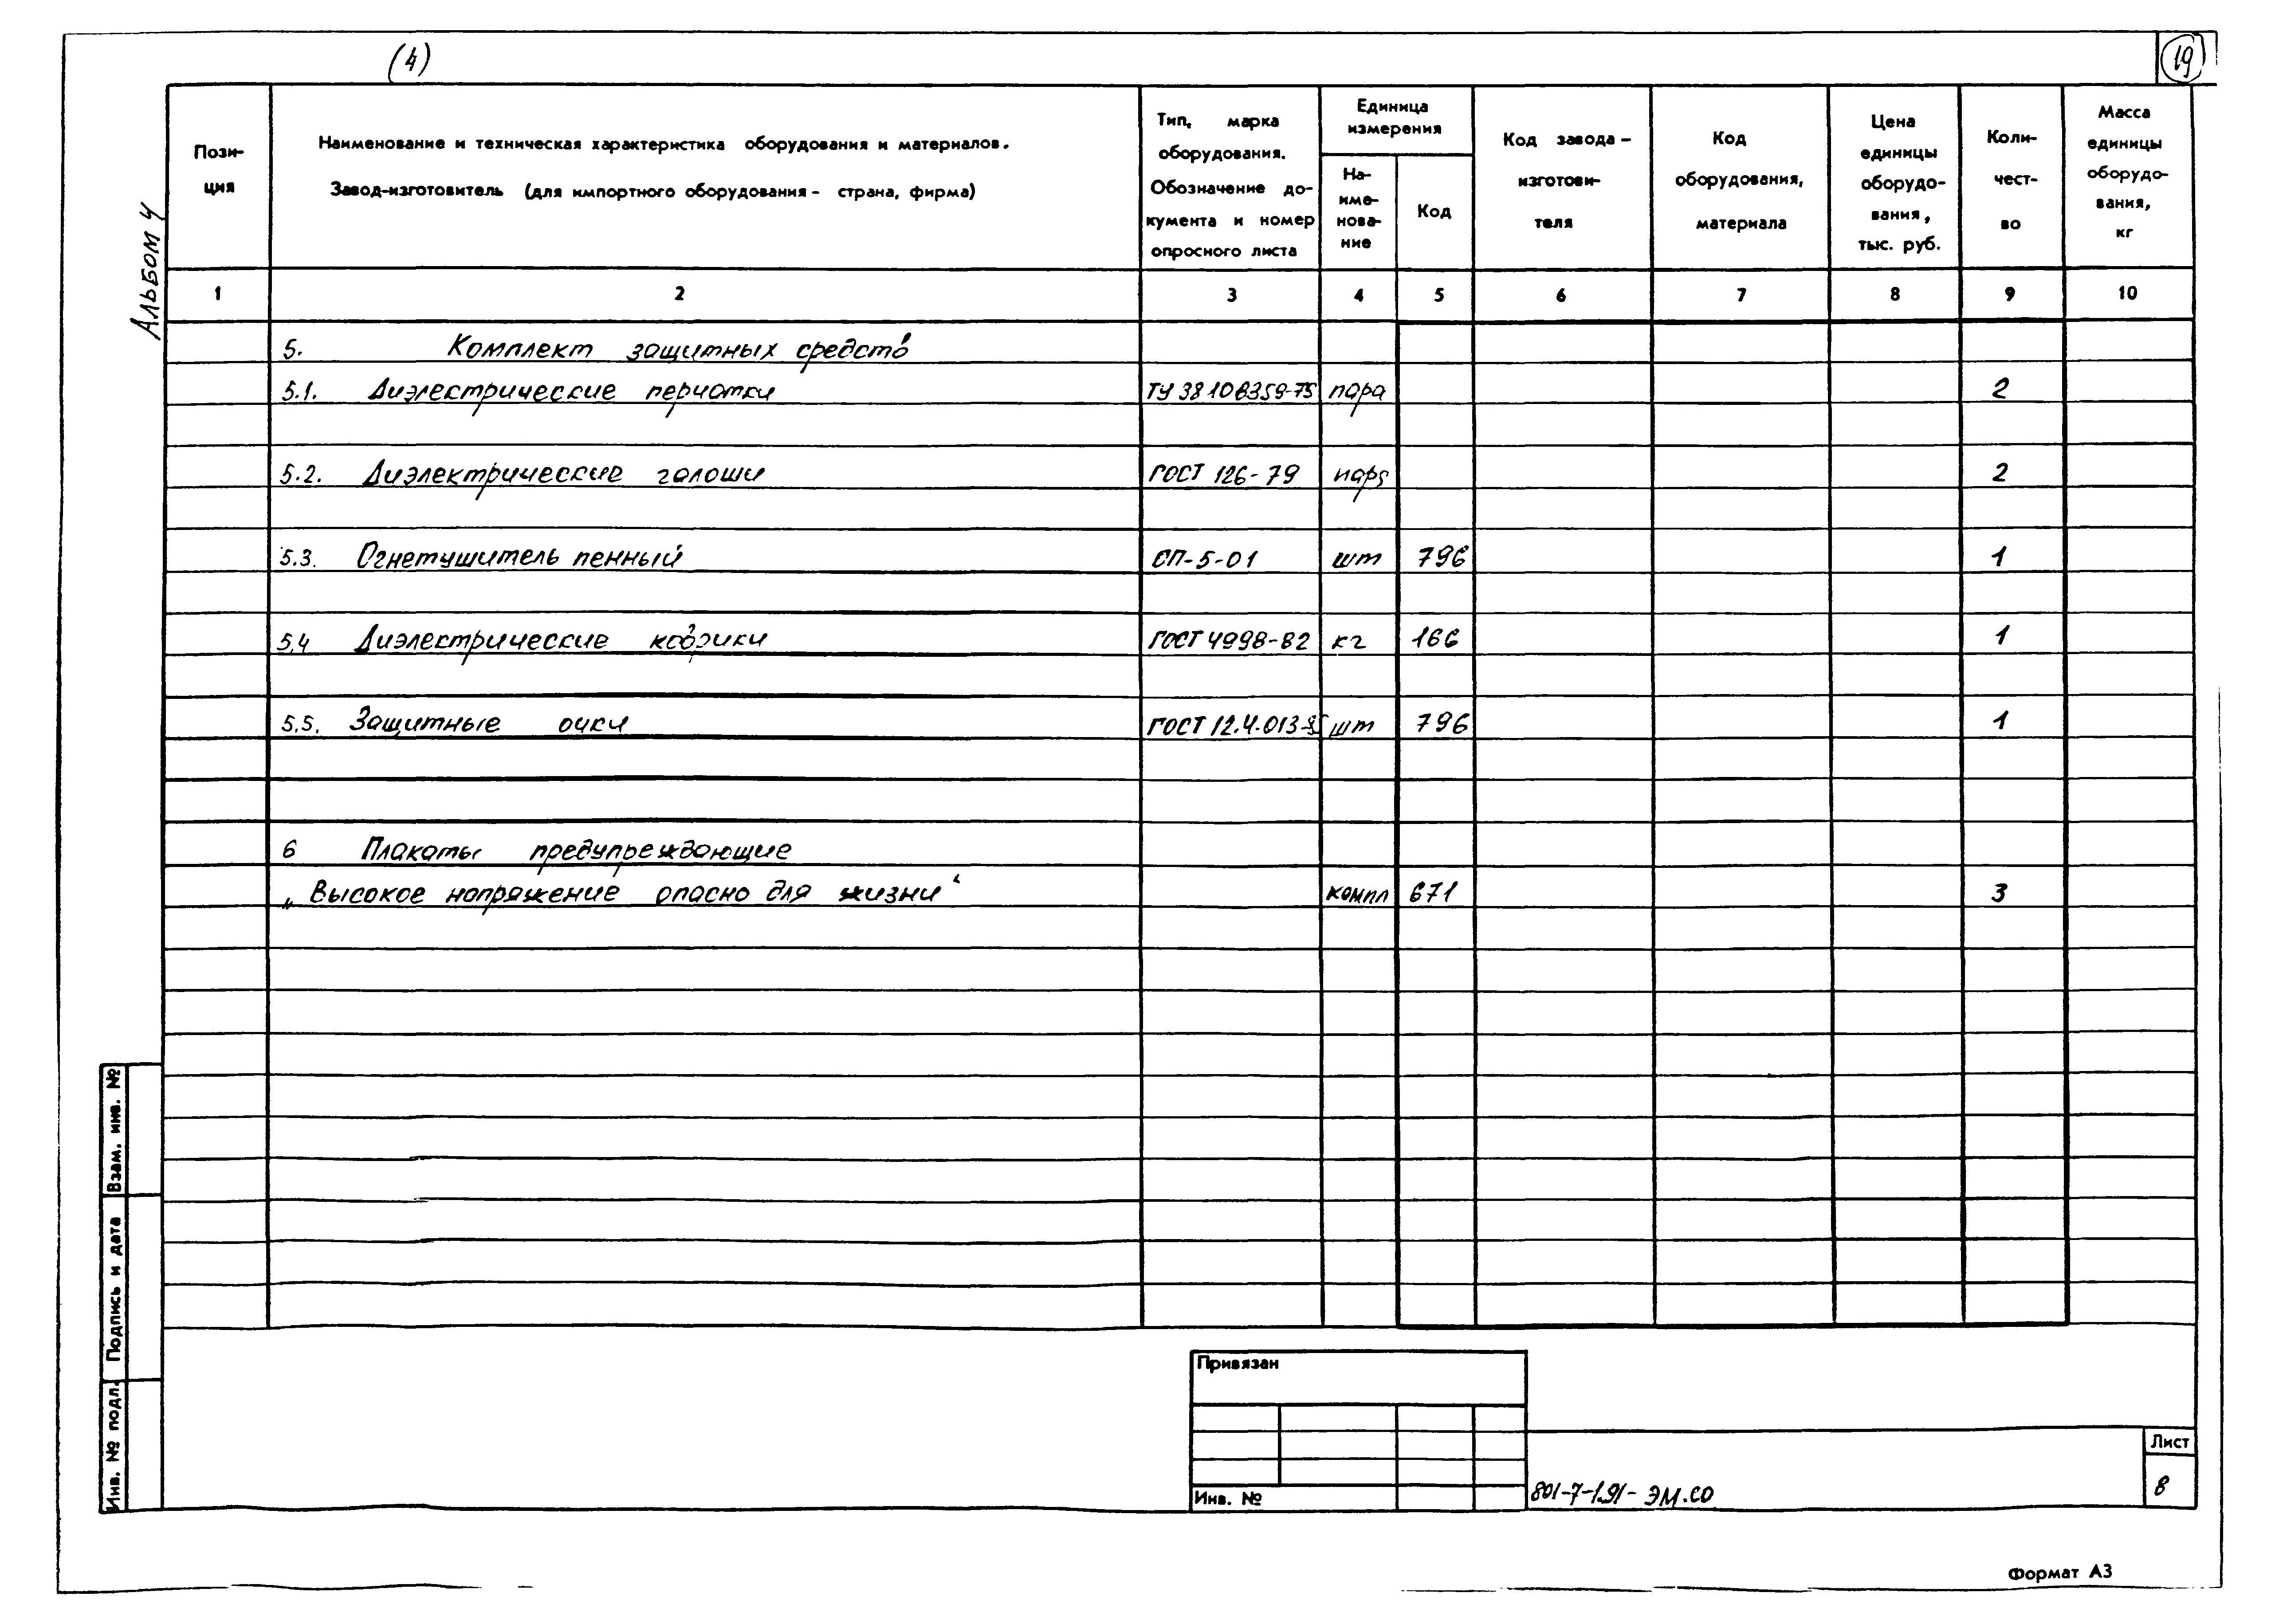 (4)
19
Альбом 4
Пози-
ция
Наименование и техническая характеристика оборудования и материалов.
Завод-изготовитель (для импортного оборудования - страна, фирма)
Тип, марка
оборудования.
Обозначение до-
кумента и номер
опросного листа
Единица
измерения
На-
име-
нова-
ние
Код
Код завода -
изготови-
теля
Код
оборудования,
материала
Цена
единицы
оборудо-
вания,
тыс. руб.
Коли-
чест-
во
Масса
единицы
оборудо-
вания,
кг
1 2 3 4 5 6 7 8 9 10
5. Комплект защитных средств
5.1. Диэлектрические перчатки ТУ 38 106359-75 пара 2
5.2. Диэлектрические галоши ГОСТ 126-79 пара 2
5.3. Огнетушитель пенный ОП-5-01 шт 796 1
5.4 Диэлектрические коврики ГОСТ 4998-82 кг 166 1
5.5. Защитные очки ГОСТ 12.4.013-85 шт 796 1
6 Плакаты предупреждающие
„Высокое напряжение опасно для жизни“ компл 671 3
Взам. инв. №
Подпись и дата
Инв. № подл.
Привязан
Инв. №
801-7-1.91- ЭМ.СО
Лист
8
Формат А3